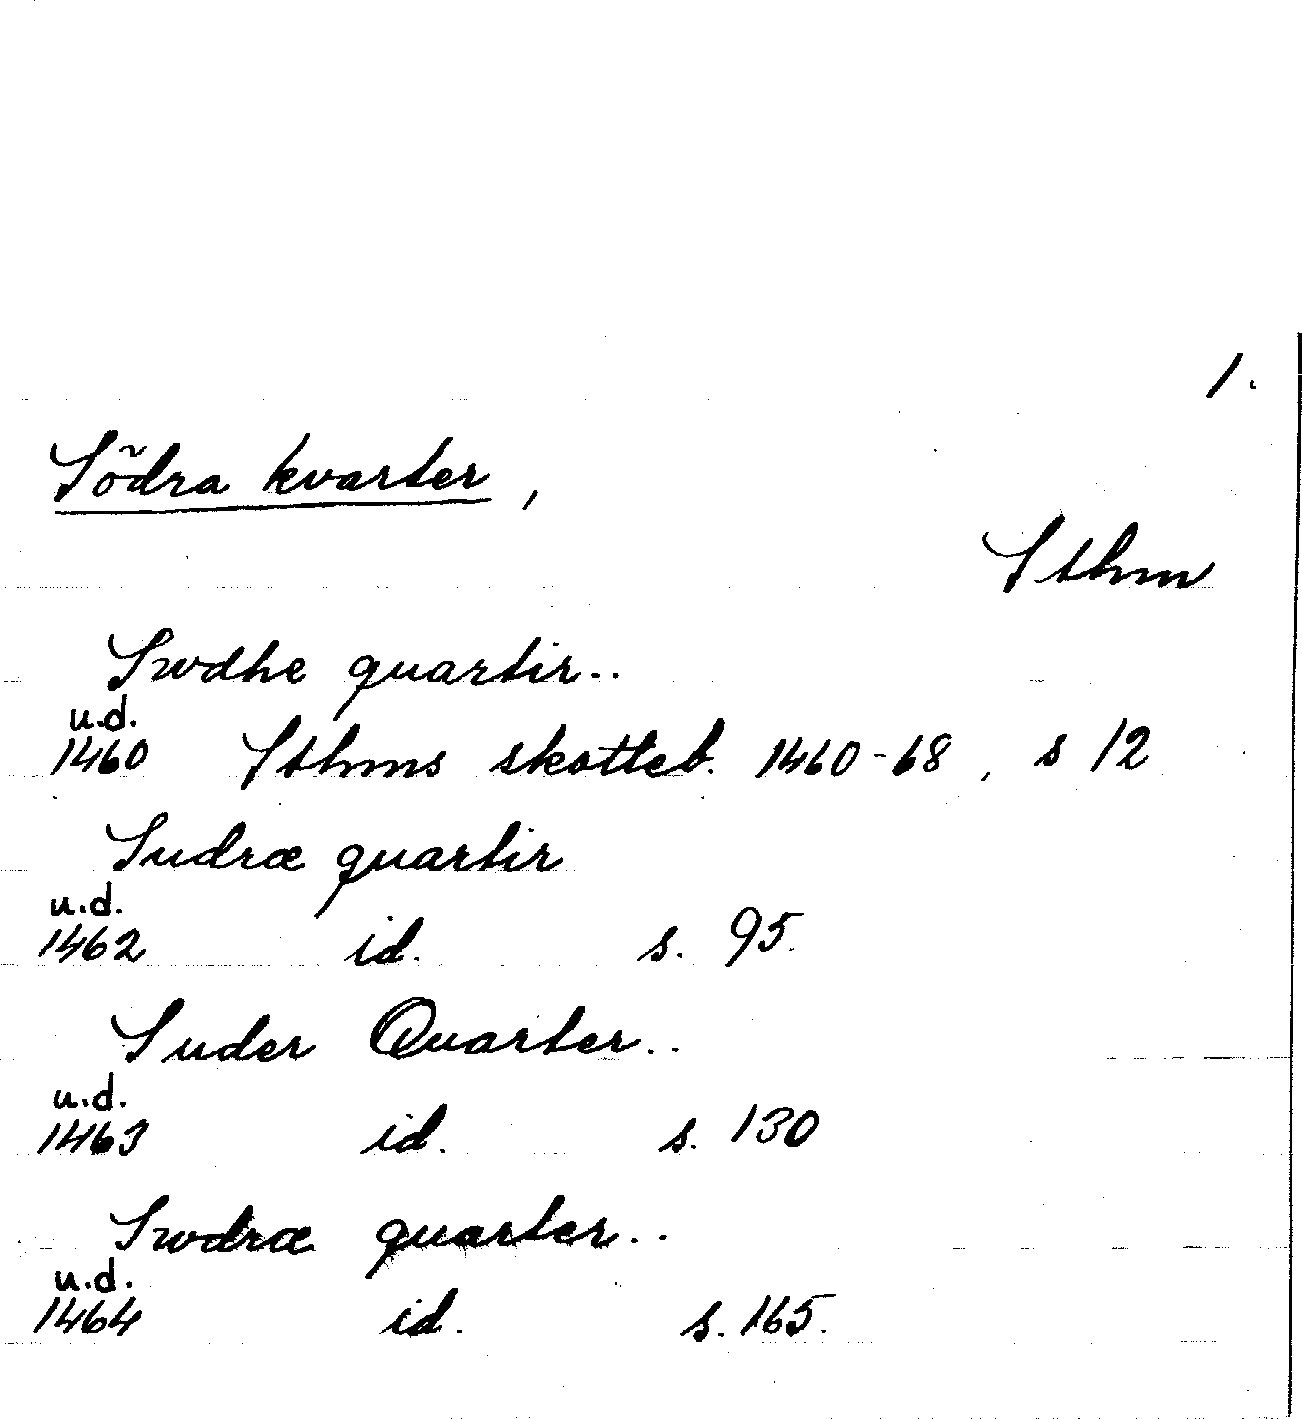 1.
Södra kvarter,
Sthm
Swdhe quartir..
u.d.
1460 Sthms skotteb. 1460-68, s 12
Sudræ quartir
u.d.
1462 id. s. 95.
Suder Quarter..
u.d.
1463 id. s. 130
Swdræ quarter..
u.d.
1464 id. s. 165.